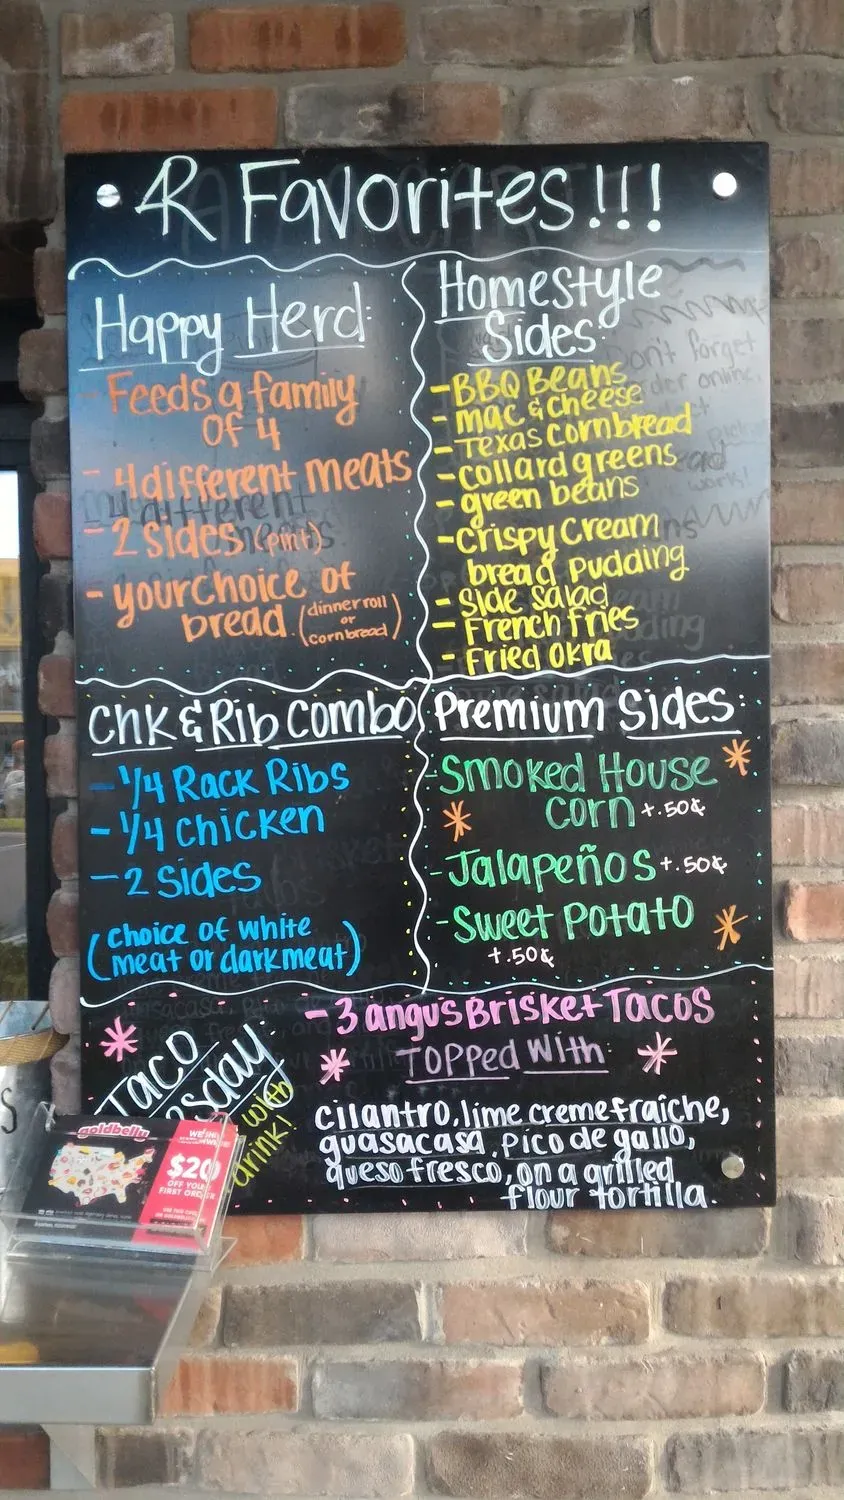 4R Favorites!!!
Happy Herd:
- Feeds a family
of 4
- 4 different meats
- 2 sides (pint)
- your choice of
bread (dinner roll
or
cornbread)
Homestyle
Sides:
- BBQ Beans
- mac & cheese
- Texas Cornbread
- collard greens
- green beans
- Crispy Cream
bread pudding
- Side Salad
- French Fries
- Fried Okra
Don't forget
online,
4 different
Chk & Rib Combo
- 1/4 Rack Ribs
- 1/4 Chicken
- 2 Sides
(choice of white
meat or dark meat)
Premium Sides:
- Smoked House
Corn +.50¢
- Jalapeños +.50¢
- Sweet Potato
+.50¢
Taco
sday!
with
drink!
- 3 angus Brisket Tacos
Topped With
cilantro, lime creme fraîche,
guasacasa, pico de gallo,
queso fresco, on a grilled
flour tortilla.
goldbelly
$20
OFF YOUR
FIRST ORDER